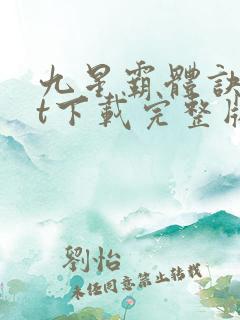 九星霸體訣
t下載完整版
劉怡
未経同意禁止转载